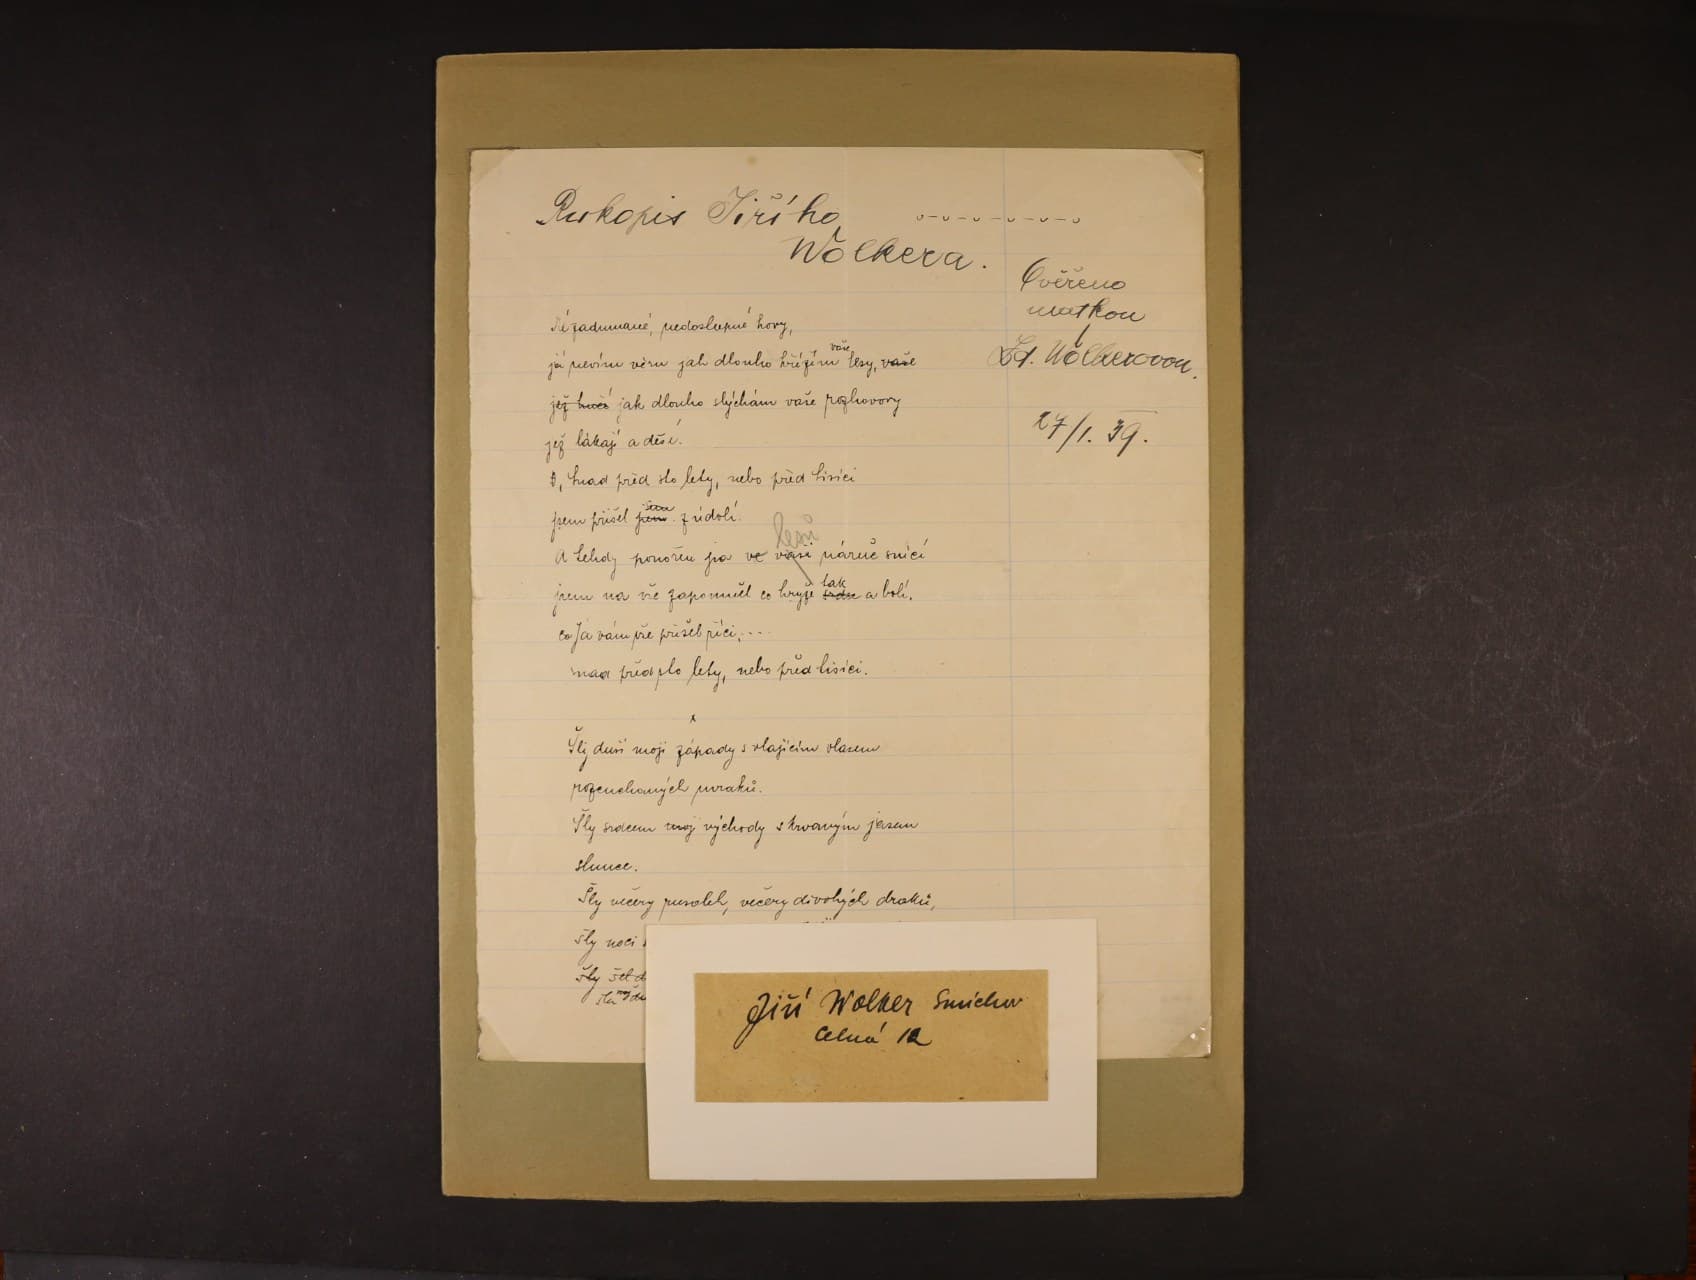 Rukopis Jiřího
Wolkera.
Ověřeno
matkou
Zd. Wolkerovou.
27/1. 39.
zadumané, nedostupné hory,
já nevím věru jak dlouho hřížím vaše lesy, vaše
jež jak dlouho slýchám vaše rozhovory
jež lákají a děsí.
snad před sto lety, nebo před tisíci
jsem přišel jsem sem z údolí.
A tehdy ponořen jsa ve vaši lesů náruč snící
jsem na vše zapomněl co hryže srdce tak a bolí.
co Já vám vše přišel říci, ....
snad před sto lety, nebo před tisíci.
x
Šly duší mojí západy s vlajícím vlasem
rozcuchaných mraků.
Šly srdcem mojí východy s krvavým jasem
slunce.
Šly večery rusalek, večery divokých draků,
šly noci
šly
Jiří Wolker Smíchov
Celná 12